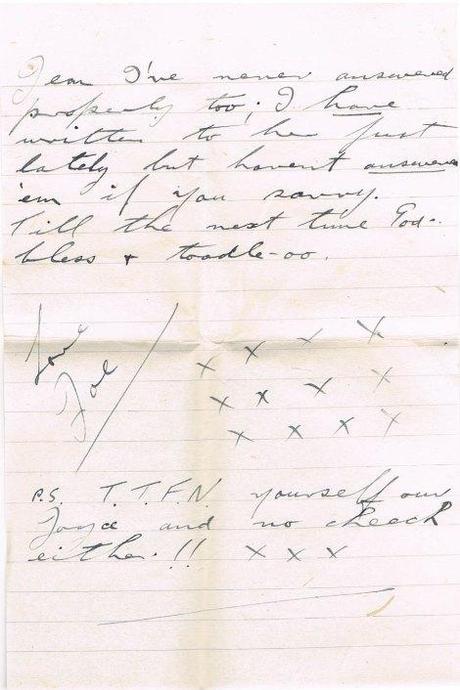 Jean I've never answered
properly too; I have
written to her just
lately but havent answered
'em if you savvy.
Till the next time God-
bless + toodle-oo.
Love
Joe
x x x x
x x x x
x x x x
P.S. T.T.F.N. yourself our
Joyce and no cheeck
either.!! x x x